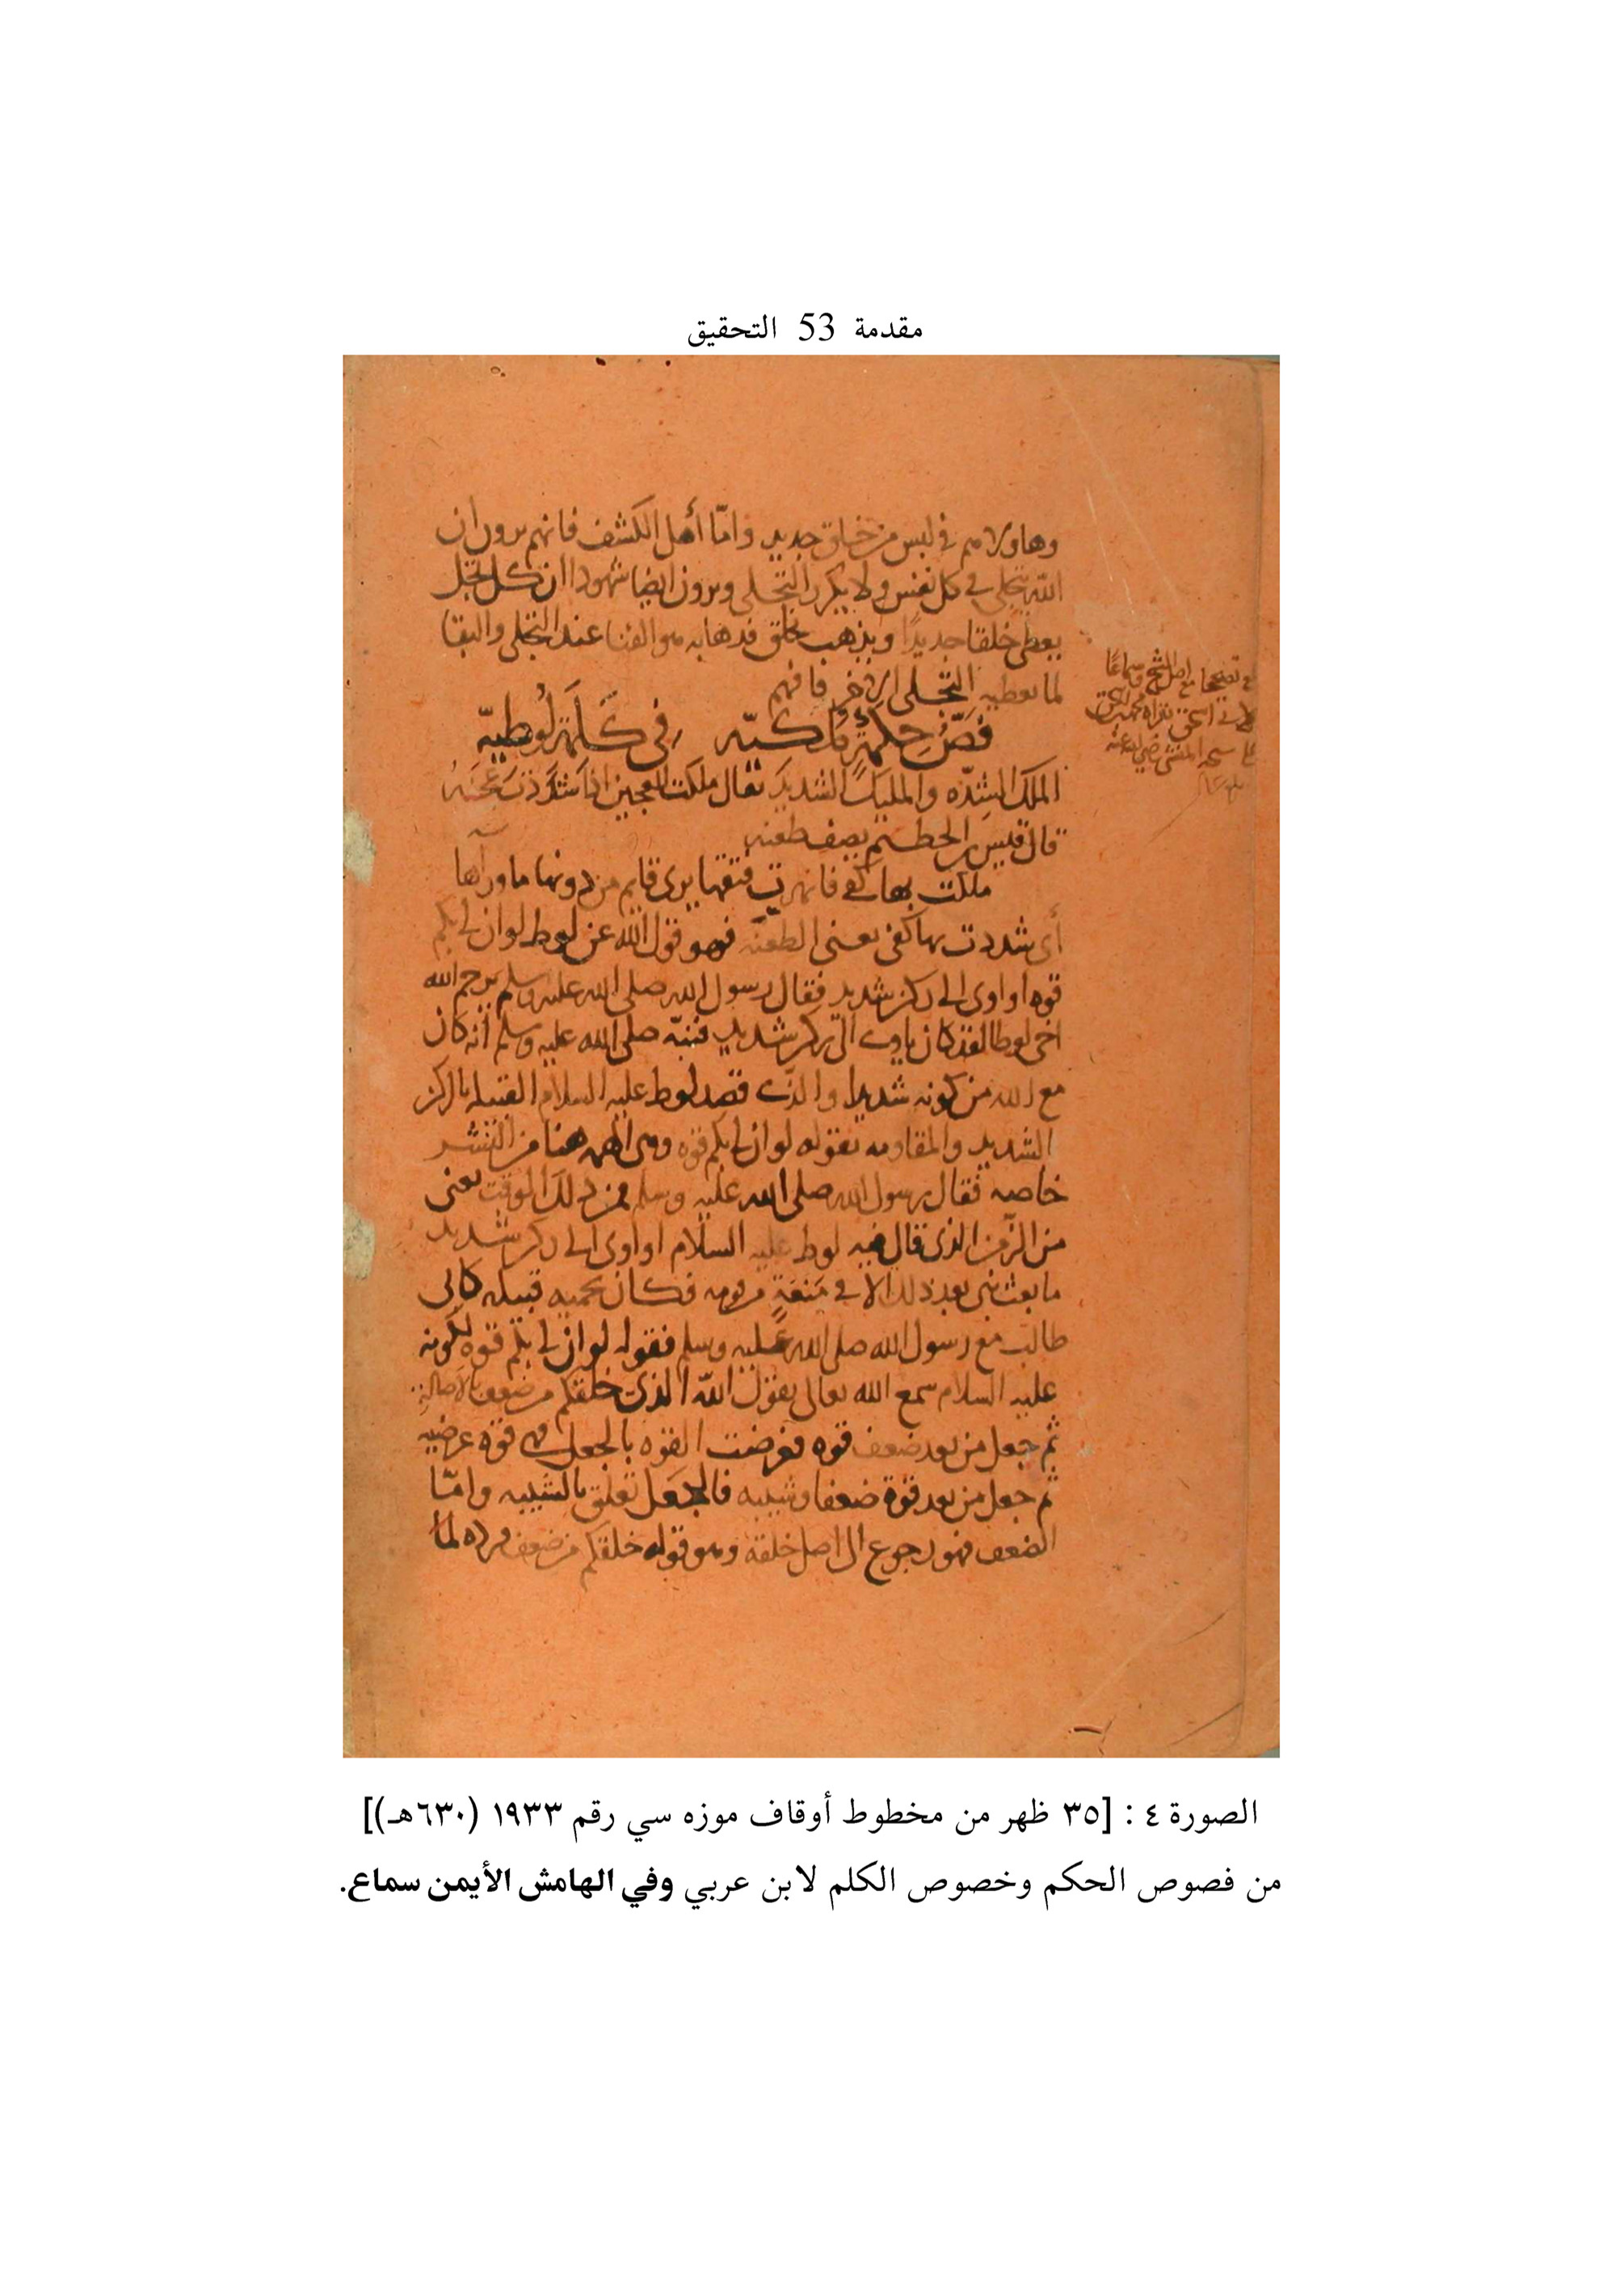 مقدمة 53 التحقيق
وهاولاء هم في لبس من خلق جديد واما أهل الكشف فانهم يرون ان
الله يتجلى في كل نفس ولا يكرر التجلي ويرون ايضا شهودا ان كل تجل
يعطى خلقا جديدًا ويذهب بخلق فذهابه هو الفنا عند التجلى والبقا
لما يعطيه التجلى الاخر فافهم
فصّ حكمة ملكيّه في كلمة لوطيّه
الملك الشدّه والمليك الشديد يقال ملكت العجين اذا شددت عجنه
قال قيس بن الحطيم يصف طعنه
ملكت بها كفى فانهرت فتقها يرى قايم من دونها ما وراها
أى شددت بها كفى يعنى الطعنه فهو قول الله عن لوط لو ان لى بكم
قوه او اوى الى ركن شديد فقال رسول الله صلى الله عليه وسلم يرحم الله
اخى لوطا لقد كان ياوى الى ركن شديد فنبّه صلى الله عليه وسلم أنه كان
مع الله من كونه شديدا والذى قصد لوط عليه السلام القبيله بالركن
الشديد والمقاومه بقوله لو ان لى بكم قوه وهى الهمه هنا من البشر
خاصه فقال رسول الله صلى الله عليه وسلم فمن ذلك الوقت يعنى
من الزمن الذى قال فيه لوط عليه السلام او اوى الى ركن شديد
ما بعث نبى بعد ذلك الا في منعة من قومه فكان يحميه قبيله كابى
طالب مع رسول الله صلى الله عليه وسلم فقوله لو ان لى بكم قوه لكونه
عليه السلام سمع الله تعالى يقول الله الذى خلقكم من ضعف بالاصالة
ثم جعل من بعد ضعف قوه فعرضت القوه بالجعل فهى قوه عرضيه
ثم جعل من بعد قوة ضعفا وشيبه فالجعل تعلق بالشيبه وامّا
الضعف فهو رجوع الى اصل خلقه وهو قوله خلقكم من ضعف فرده لما
الصورة ٤ : [٣٥ ظهر من مخطوط أوقاف موزه سي رقم ١٩٣٣ (٦٣٠هـ)]
من فصوص الحكم وخصوص الكلم لابن عربي وفي الهامش الأيمن سماع.